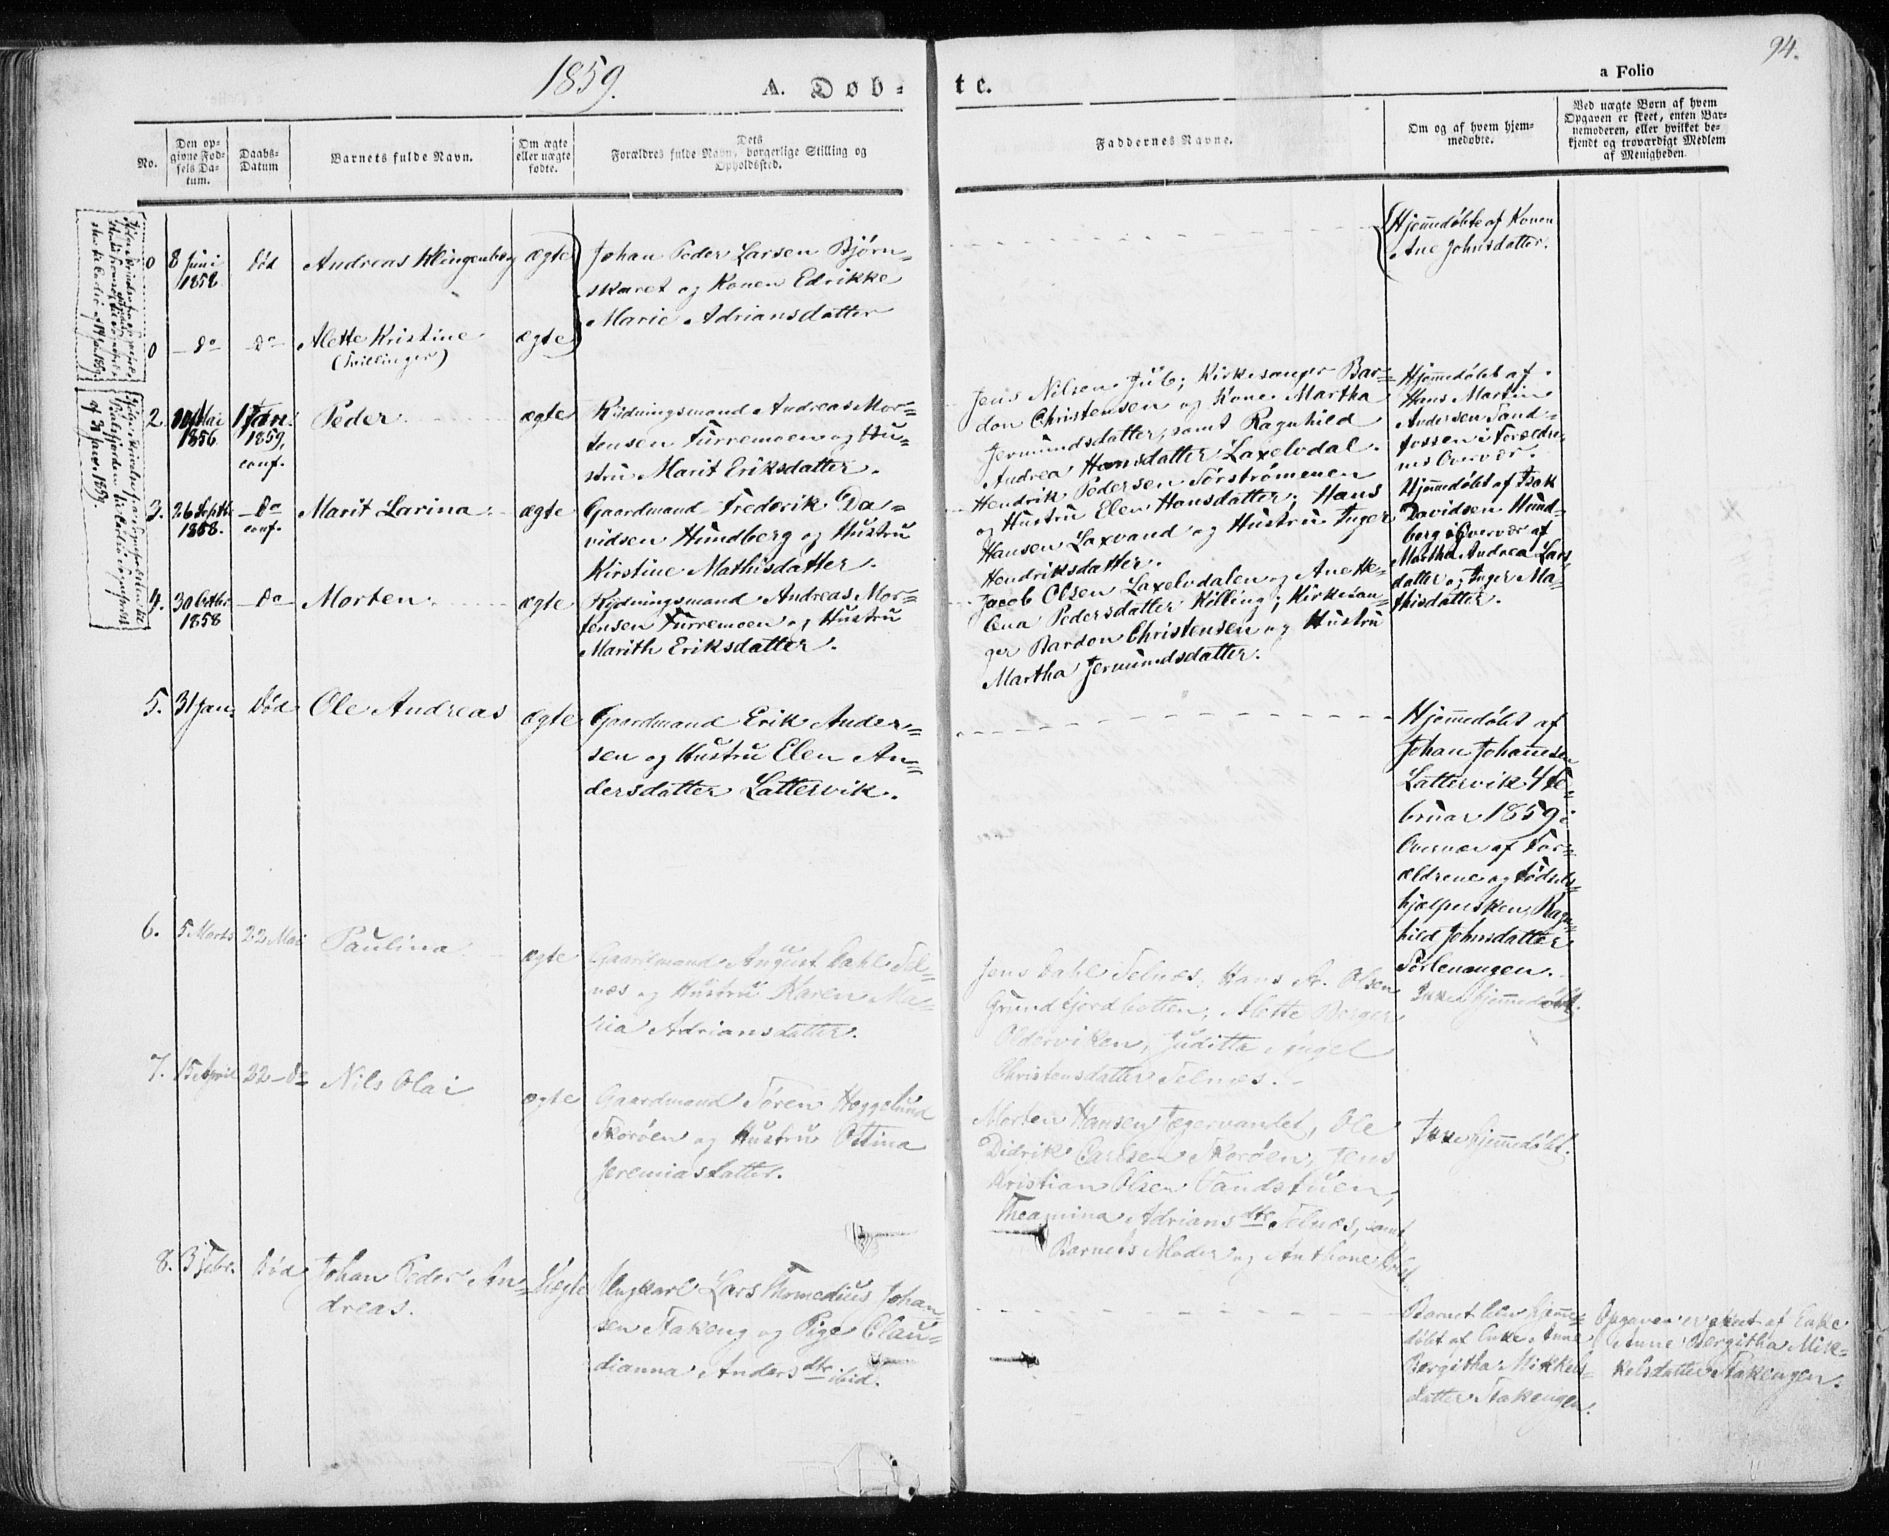 1859.
A. Døb-
te.
94.
a Folio
No.
Den op-
givne Fød-
sels Da-
tum.
Daabs-
Datum
Barnets fulde Navn.
Om ægte
eller uægte
fødte.
Dets
Forældres fulde Navn, borgerlige Stilling og
Opholdssted.
Faddernes Navne.
Om og af hvem hjem-
medøbte.
Ved uægte Børn af hvem
Opgaven er skeet, enten Bar-
nemoderen, eller hvilket be-
kjendt og troværdigt Medlem
af Menigheden.
0
8 Juni
1858
Død
Andreas Klingenberg
ægte
Johan Peder Larsen Bjørn=
skaret og Konen Edrikke
Marie Adriansdatter
Hjemedøbte af Konen
Ane Johnsdatter.
0
Do
Do
Alette Kristine
(Tvillinger)
ægte
2.
Mai
1856
1 Febr.
1859
conf.
Peder
ægte
Rydningsmand Andreas Mor=
tensen Furremoen og Hu=
stru Marit Eriksdatter.
Jens Nilsen Jub; Kirkesanger Bar=
don Christensen og Kone Martha
Jermundsdatter, samt Ragnhild
Andrea Hansdatter Laxelvdal.
Hjemedøbt af
Hans Martin
Andersen Sand=
fossen i Forældre=
nes Overvær.
3.
26 Septbr
1858.
Do
conf.
Marit Larina.
ægte
Gaardmand Frederik Da=
vidsen Hundberg og Hustru
Kirstine Mathisdatter.
Hendrik Pedersen Sørstrømenen
og Hustru Elen Hansdatter; Hans
Hansen Laxvand og Hustru Inger
Hendriksdatter.
Hjemedøbt af Isak
Davidsen Hund=
berg i Overvær af
Martha Andrea Lars
datter og Inger Ma=
thisdatter.
4.
30 Octbr
1858
Do
Morten.
ægte
Rydningsmand Andreas Mor=
tensen Furremoen og Hustru
Marith Eriksdatter.
Jacob Olsen Laxelvdalen og Anette=
Lena Pedersdatter Kölling; Kirkesan=
ger Bardon Christensen og Hustru
Martha Jermundsdatter.
5.
31 Jan.
Død
Ole Andreas
ægte
Gaardmand Erik Ander=
sen og Hustru Elen An=
dersdatter Lattervik.
Hjemedøbt af
Johan Johannesen
Lattervik 4 Fe=
bruar 1859 i
Overvær af For=
ældrene og Fødsels=
hjælpersken Ragn=
hild Johnsdatter
Sørlenangen.
6.
5 Marts
22 Mai
Paulina
ægte
Gaardmand August Dahl Sel=
næs og Hustru Karen Ma=
ria Adriansdatter.
Jens Dahl Selnæs, Hans A. Olsen
Grundfjordbotten; Alette Berger
Oldervikken, Juditta Angel
Christensdatter Selnæs.
Ikke hjemedøbt.
7.
15 April
22 - Do
Nils Olai
ægte
Gaardmand Søren Hæggelund
Skorøen og Hustru Ottina
Jeremiasdatter.
Morten Hansen Jægervandet, Ole
Didrik Carlsen Skorøen, Jens
Kristian Olsen Sandstuen,
Theamina Adriansdtr Selnæs, samt
Barnets Moder og Anthone
Ikke hjemedøbt.
8.
3 Febr.
Død
Johan Peder An=
dreas.
Uægte
Ungkarl Lars Thomedius Johan=
sen Stakeng og Pige Clau=
dianna Andersdtr ibid.
Barnet blev hjemme=
døbt af Enke Anne
Bergitha Mikkels=
datter Stakengen.
Opgaven er skeet af Enke
Anne Bergitha Mik=
kelsdatter Stakengen.